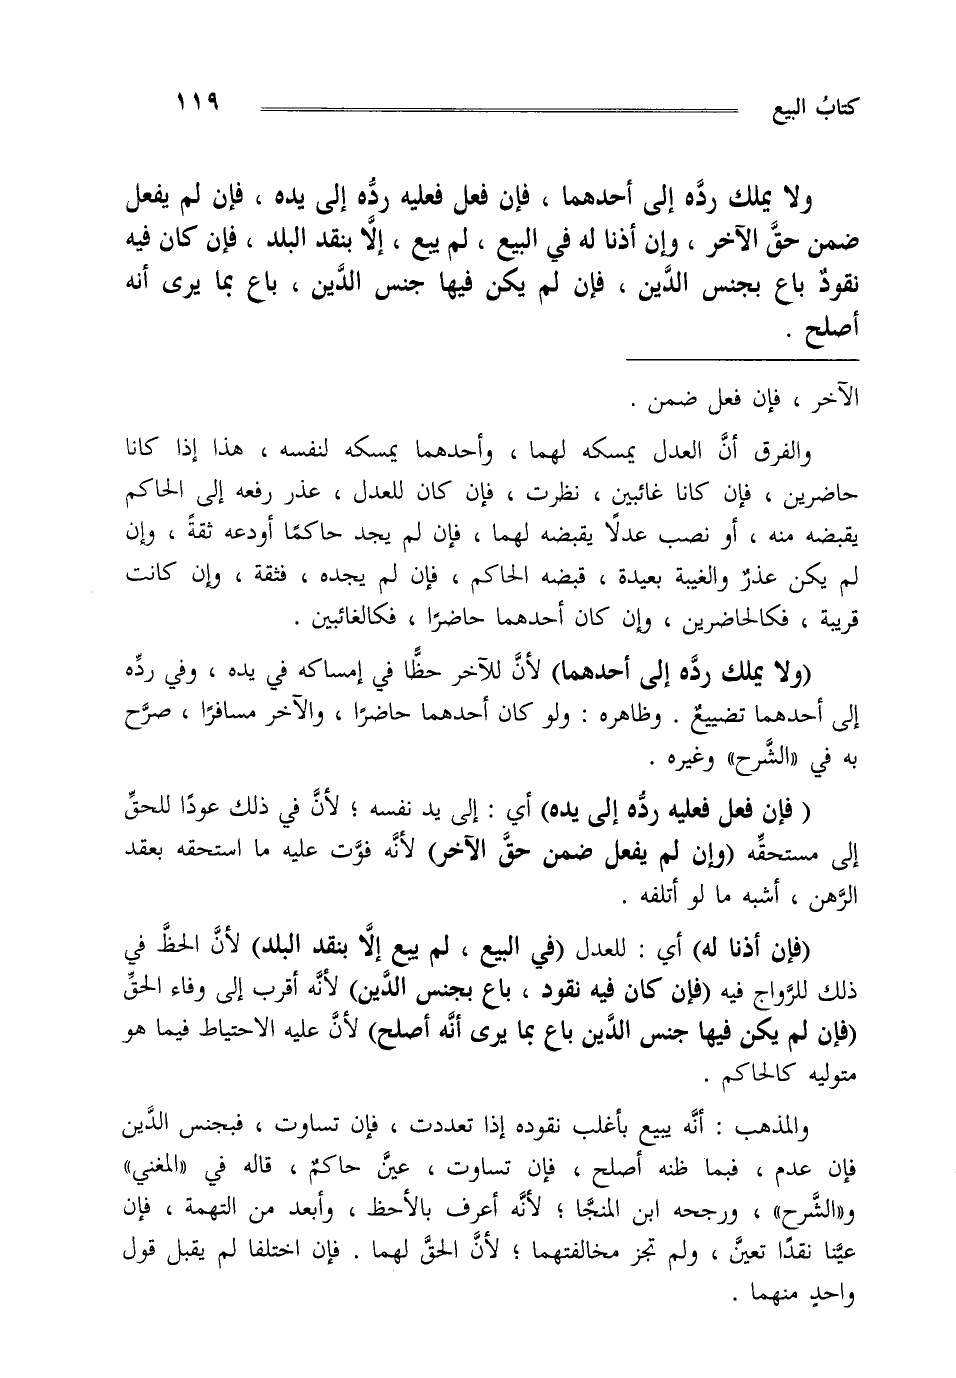 كتابُ البيع ١١٩
ولا يملك ردَّه إلى أحدهما ، فإن فعل فعليه ردُّه إلى يده ، فإن لم يفعل
ضمن حقَّ الآخر ، وإن أذنا له في البيع ، لم يبع ، إلَّا بنقد البلد ، فإن كان فيه
نقودٌ باع بجنس الدَّين ، فإن لم يكن فيها جنس الدَّين ، باع بما يرى أنه
أصلح .
الآخر ، فإن فعل ضمن .
والفرق أنَّ العدل يمسكه لهما ، وأحدهما يمسكه لنفسه ، هذا إذا كانا
حاضرين ، فإن كانا غائبين ، نظرت ، فإن كان للعدل ، عذر رفعه إلى الحاكم
يقبضه منه ، أو نصب عدلًا يقبضه لهما ، فإن لم يجد حاكمًا أودعه ثقةً ، وإن
لم يكن عذرٌ والغيبة بعيدة ، قبضه الحاكم ، فإن لم يجده ، فثقة ، وإن كانت
قريبة ، فكالحاضرين ، وإن كان أحدهما حاضرًا ، فكالغائبين .
(ولا يملك ردَّه إلى أحدهما) لأنَّ للآخر حظًّا في إمساكه في يده ، وفي ردِّه
إلى أحدهما تضييعٌ . وظاهره : ولو كان أحدهما حاضرًا ، والآخر مسافرًا ، صرَّح
به في «الشَّرح» وغيره .
( فإن فعل فعليه ردُّه إلى يده) أي : إلى يد نفسه ؛ لأنَّ في ذلك عودًا للحقِّ
إلى مستحقِّه (وإن لم يفعل ضمن حقَّ الآخر) لأنَّه فوَّت عليه ما استحقه بعقد
الرَّهن ، أشبه ما لو أتلفه .
(فإن أذنا له) أي : للعدل (في البيع ، لم يبع إلَّا بنقد البلد) لأنَّ الحظَّ في
ذلك للرَّواج فيه (فإن كان فيه نقود ، باع بجنس الدَّين) لأنَّه أقرب إلى وفاء الحقِّ
(فإن لم يكن فيها جنس الدَّين باع بما يرى أنَّه أصلح) لأنَّ عليه الاحتياط فيما هو
متوليه كالحاكم .
والمذهب : أنَّه يبيع بأغلب نقوده إذا تعددت ، فإن تساوت ، فبجنس الدَّين
فإن عدم ، فبما ظنه أصلح ، فإن تساوت ، عينَّ حاكمٌ ، قاله في «المغني»
و«الشَّرح» ، ورجحه ابن المنجَّا ؛ لأنَّه أعرف بالأحظ ، وأبعد من التهمة ، فإن
عيَّنا نقدًا تعينَّ ، ولم تجز مخالفتهما ؛ لأنَّ الحقَّ لهما . فإن اختلفا لم يقبل قول
واحدٍ منهما .